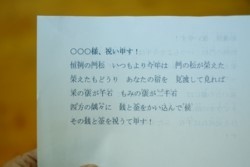 ○○○様、祝い申す！
いつもより今年は 門の松が栄えた
栄えたもどうり あなたの宿を 見渡して見れば
米の俵が千石 もみの俵が二千石
四方の隅に 銭と茶をかい込んで
その銭と茶を祝うて申す！